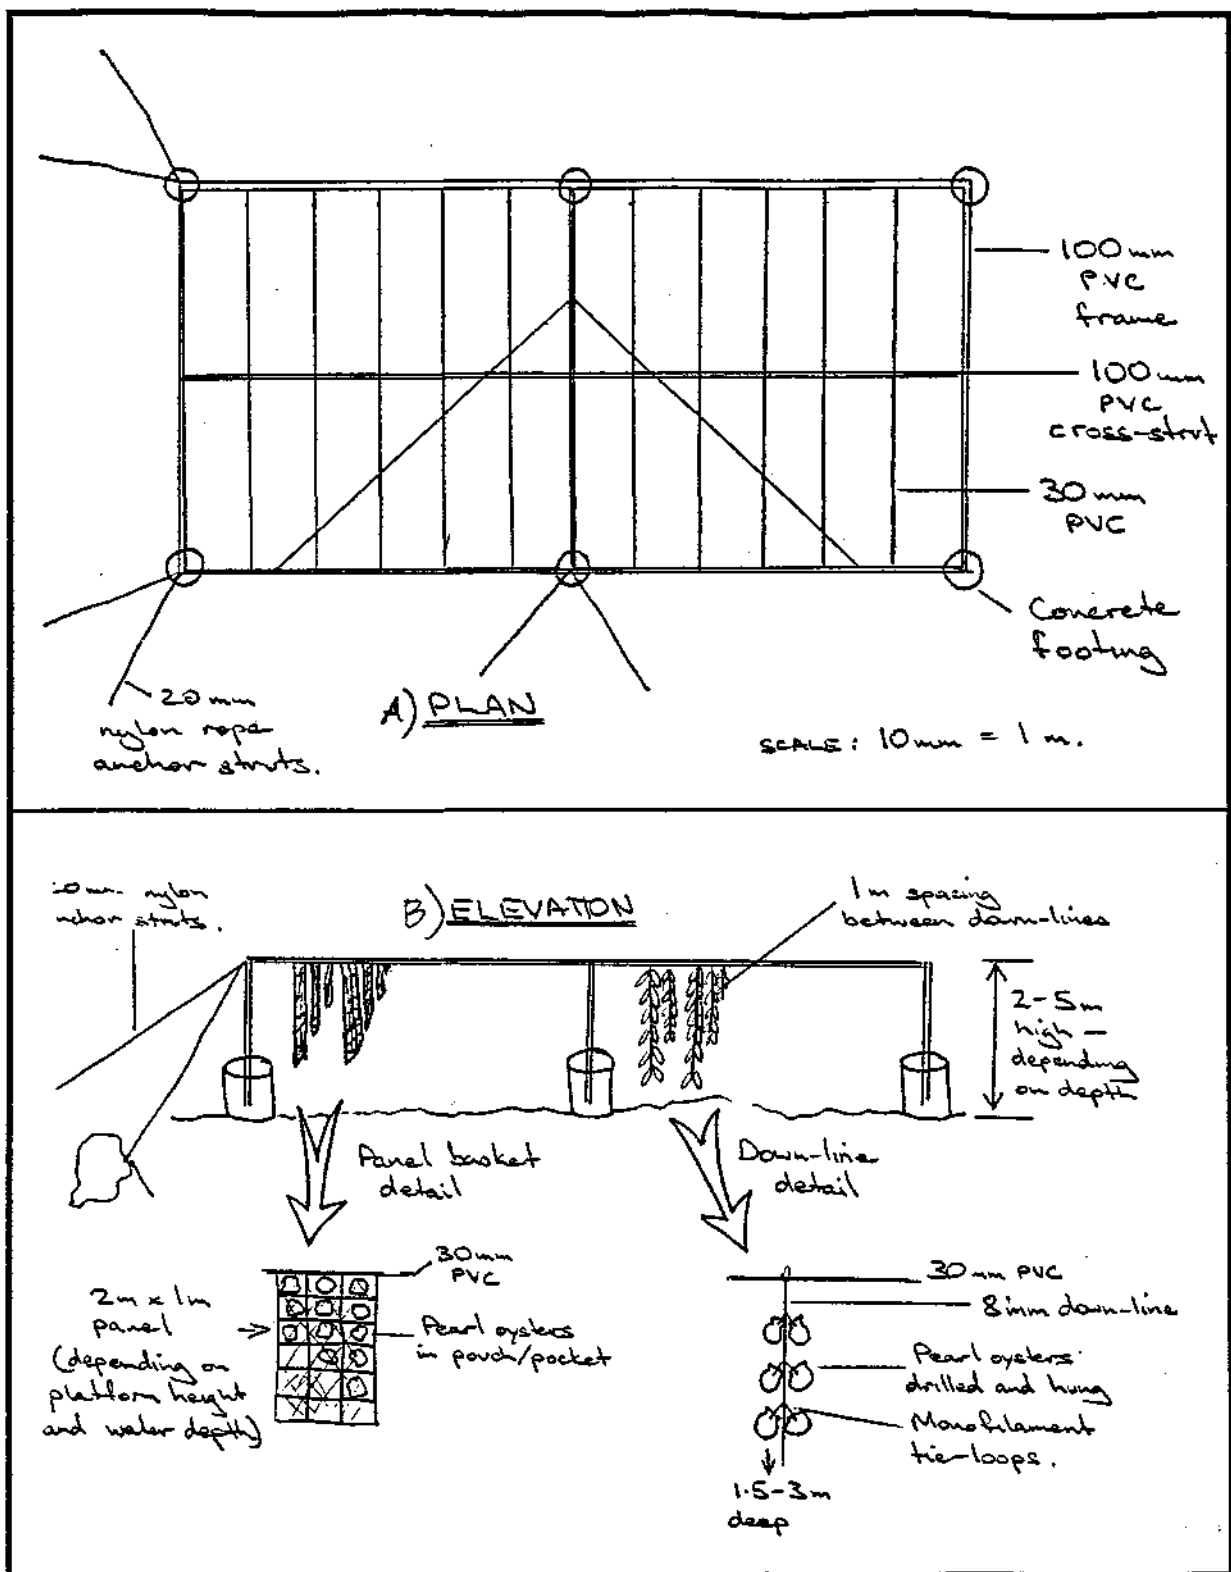 100mm
PVC
frame
100mm
PVC
cross-strut
30mm
PVC
Concrete
footing
20mm
nylon rope
anchor struts.
A) PLAN
SCALE: 10mm = 1m.
0mm nylon
nchor struts.
B) ELEVATION
1m spacing
between down-lines
2-5m
high -
depending
on depth
Panel basket
detail
Down-line
detail
30mm
PVC
2m x 1m
panel
(depending on
platform height
and water depth)
Pearl oysters
in pouch/pocket
30mm PVC
8mm down-line
Pearl oysters
drilled and hung
Monofilament
tie-loops.
1.5-3m
deep